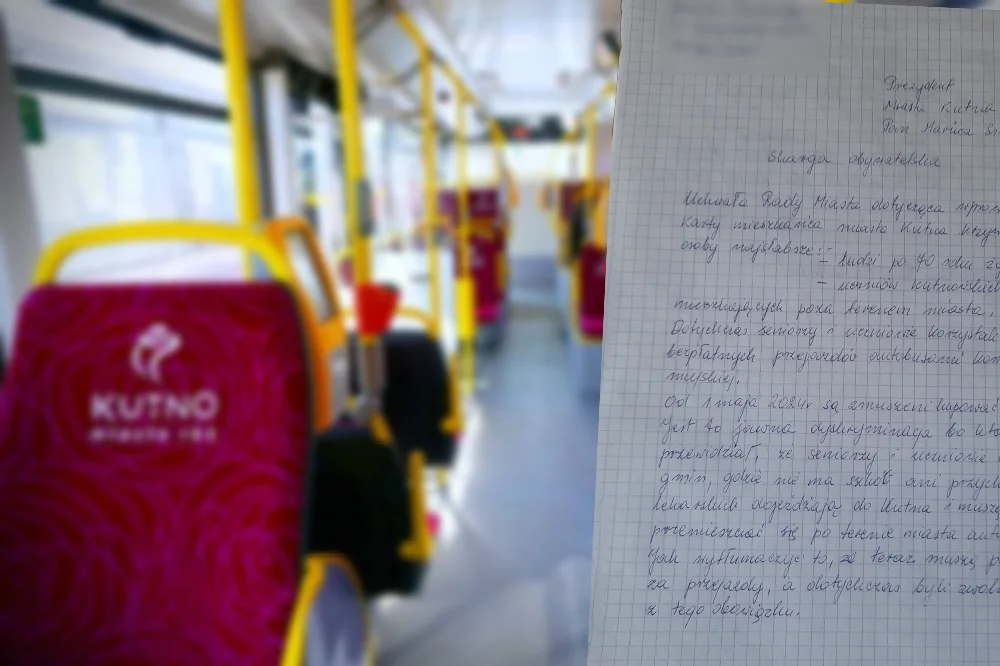 KUTNO
miasto róż
Prezydent
Miasta Kutna
Pan Mariusz
Skarga obywatelska
Uchwała Rady Miasta dotycząca
Karty mieszkańca miasta Kutna
osoby najsłabsze: - ludzi po 70 roku
- uczniów kutnowskich
mieszkających poza terenem miasta.
Dotychczas seniorzy i uczniowie korzystali
bezpłatnych przejazdów autobusami
miejskiej.
Od 1 maja 2024r są zmuszeni kupować
Jest to jawna dyskryminacja bo kto
przewidział, że seniorzy i uczniowie
gmin, gdzie nie ma szkół ani
lekarskich dojeżdżają do Kutna i muszą
przemieszczać się po terenie miasta
Jak wytłumaczyć to, że teraz muszą
za przejazdy, a dotychczas byli
z tego obowiązku.